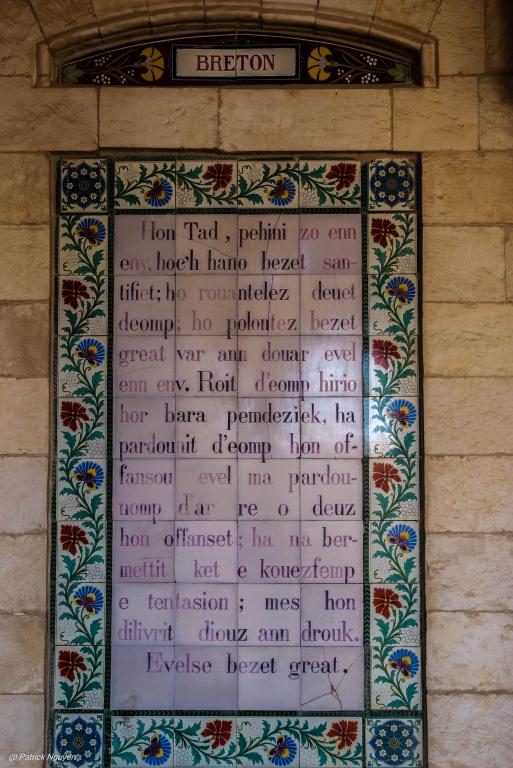 BRETON
Hon Tad, pehini zo enn
env, hoc'h hano bezet san-
tifiet; ho rouantelez deuet
deomp; ho polontez bezet
great var ann douar evel
enn env. Roit d'eomp hirio
hor bara pemdeziek, ha
pardounit d'eomp hon of-
fansou evel ma pardou-
nomp d'ar re o deuz
hon offanset; ha na ber-
mettit ket e kouezfemp
e tentasion; mes hon
dilivrit diouz ann drouk.
Evelse bezet great.
@ Patrick Nguyen